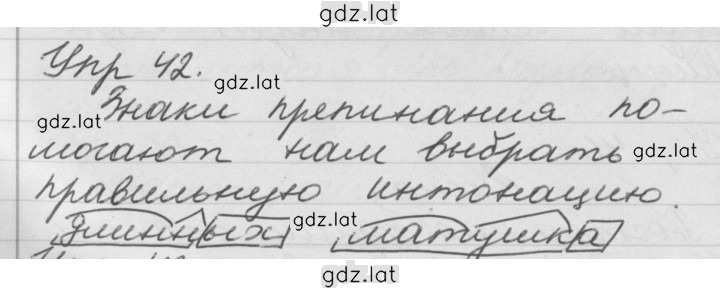 gdz.lat
Упр 42.
gdz.lat
Знаки препинания по-
gdz.lat
могают нам выбрать
gdz.lat
правильную интонацию.
gdz.lat
длинных, матушка
gdz.lat